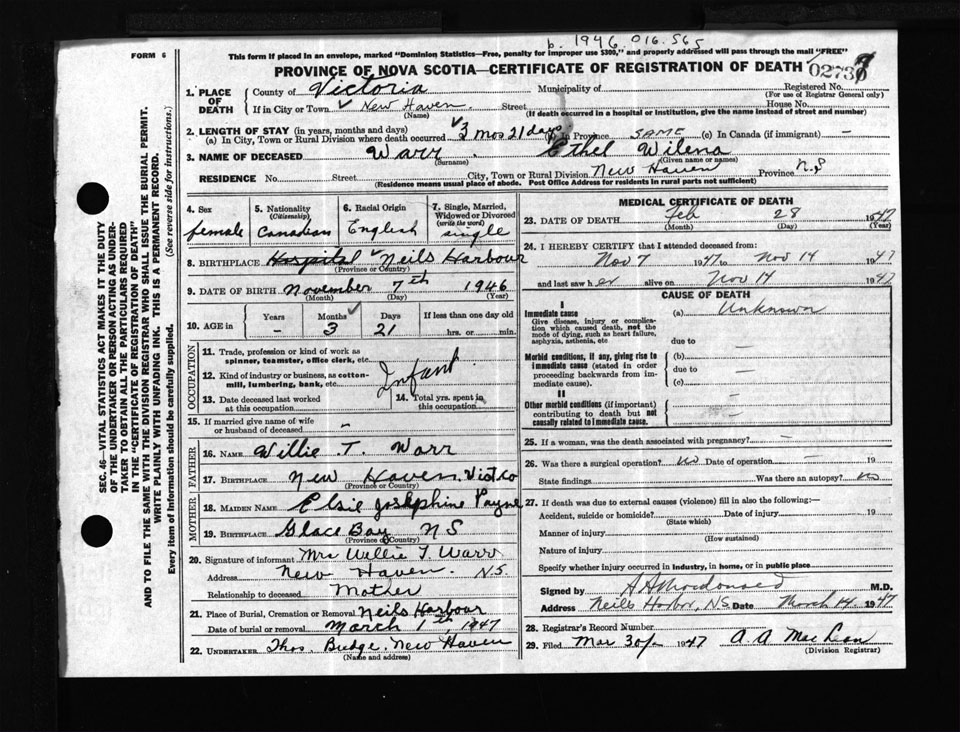 b. 1946 016.565
FORM 6
This form if placed in an envelope, marked "Dominion Statistics—Free, penalty for improper use $300," and properly addressed will pass through the mail "FREE"
PROVINCE OF NOVA SCOTIA—CERTIFICATE OF REGISTRATION OF DEATH
1. PLACE OF DEATH
County of Victoria Municipality of
Registered No.
(For use of Registrar General only)
If in City or Town New Haven Street House No.
(Name) (If death occurred in a hospital or institution, give the name instead of street and number)
2. LENGTH OF STAY (in years, months and days)
(a) In City, Town or Rural Division where death occurred 3 mos 21 days (b) In Province SAME (c) In Canada (if immigrant) —
3. NAME OF DECEASED Warr Ethel Wilena
(Surname) (Given name or names)
RESIDENCE No. Street City, Town or Rural Division New Haven Province N.S
(Residence means usual place of abode. Post Office Address for residents in rural parts not sufficient)
4. Sex female
5. Nationality (Citizenship) Canadian
6. Racial Origin English
7. Single, Married, Widowed or Divorced (write the word) single
8. BIRTHPLACE Hospital Neils Harbour
(Province or Country)
9. DATE OF BIRTH November 7th 1946
(Month) (Day) (Year)
10. AGE in Years Months Days If less than one day old
— 3 21 hrs. or min.
OCCUPATION
11. Trade, profession or kind of work as spinner, teamster, office clerk, etc.
12. Kind of industry or business, as cotton-mill, lumbering, bank, etc.
Infant
13. Date deceased last worked at this occupation
14. Total yrs. spent in this occupation
15. If married give name of wife or husband of deceased —
FATHER
16. NAME Willie T. Warr
17. BIRTHPLACE New Haven. Vict Co
(Province or Country)
MOTHER
18. MAIDEN NAME Elsie Josephine Payne
19. BIRTHPLACE Glace Bay NS
(Province or Country)
20. Signature of informant Mrs Willie T. Warr
Address New Haven. N.S.
Relationship to deceased Mother
21. Place of Burial, Cremation or Removal Neils Harbour
Date of burial or removal March 1st, 1947
22. UNDERTAKER Thos. Budge. New Haven
(Name and address)
MEDICAL CERTIFICATE OF DEATH
23. DATE OF DEATH Feb 28 1947
(Month) (Day) (Year)
24. I HEREBY CERTIFY that I attended deceased from:
Nov 7 1947 to Nov 14 1947
and last saw her alive on Nov 14 1947
CAUSE OF DEATH
I
Immediate cause
Give disease, injury or complication which caused death, not the mode of dying, such as heart failure, asphyxia, asthenia, etc
(a) Unknown
due to —
Morbid conditions, if any, giving rise to immediate cause (stated in order proceeding backwards from immediate cause).
(b) —
due to —
(c) —
II
Other morbid conditions (if important) contributing to death but not causally related to immediate cause.
25. If a woman, was the death associated with pregnancy? —
26. Was there a surgical operation? No Date of operation — 19
State findings Was there an autopsy? No
27. If death was due to external causes (violence) fill in also the following:—
Accident, suicide or homicide? Date of injury 19
(State which)
Manner of injury
(How sustained)
Nature of injury
Specify whether injury occurred in industry, in home, or in public place
Signed by M.D.
Address Neils Harbor, N.S. Date March 14. 1947
28. Registrar's Record Number
29. Filed Mar 30th 1947 A. A Mac Lean
(Division Registrar)
SEC. 46—VITAL STATISTICS ACT MAKES IT THE DUTY
OF THE UNDERTAKER OR PERSON ACTING AS UNDERTAKER TO OBTAIN ALL THE PARTICULARS REQUIRED
IN THE "CERTIFICATE OF REGISTRATION OF DEATH"
AND TO FILE THE SAME WITH THE DIVISION REGISTRAR WHO SHALL ISSUE THE BURIAL PERMIT.
WRITE PLAINLY WITH UNFADING INK. THIS IS A PERMANENT RECORD.
Every item of Information should be carefully supplied. (See reverse side for instructions.)